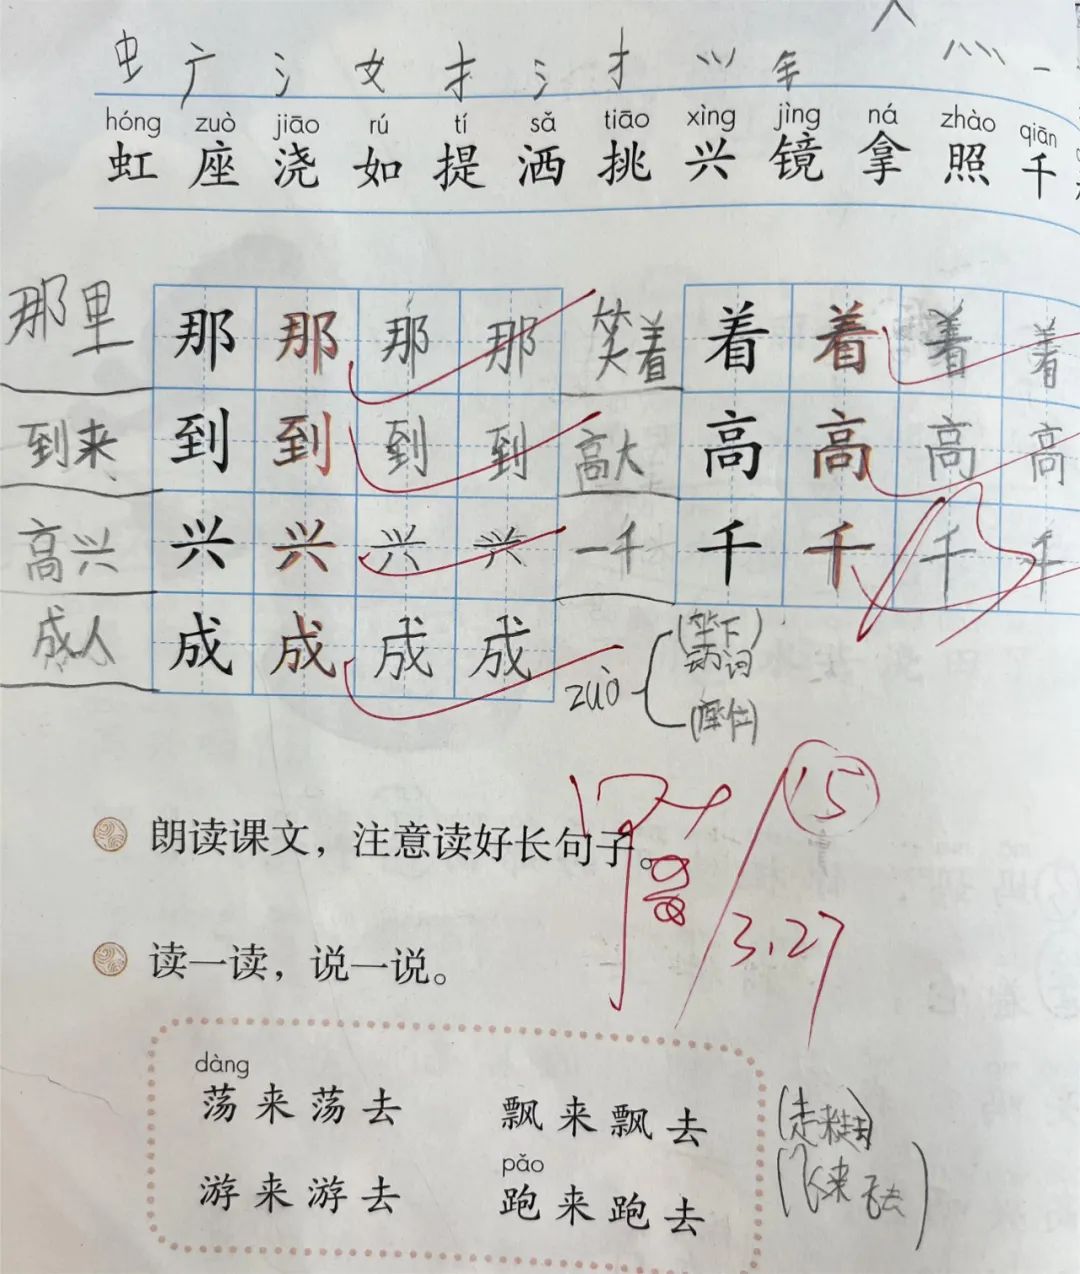 虫 广 氵 女 扌 氵 扌 ⺍ 钅 灬 一
hóng zuò jiāo rú tí sǎ tiāo xìng jìng ná zhào qiān
虹 座 浇 如 提 洒 挑 兴 镜 拿 照 千
那里 那 那 那 那 笑着 着 着 着 着
到来 到 到 到 到 高大 高 高 高 高
高兴 兴 兴 兴 兴 一千 千 千 千 千
成人 成 成 成 成
zuò (坐下) 动词
(座位)
15
3.27
朗读课文，注意读好长句子。
读一读，说一说。
dàng
荡来荡去 飘来飘去 (走来走去)
pǎo
游来游去 跑来跑去 (飞来飞去)